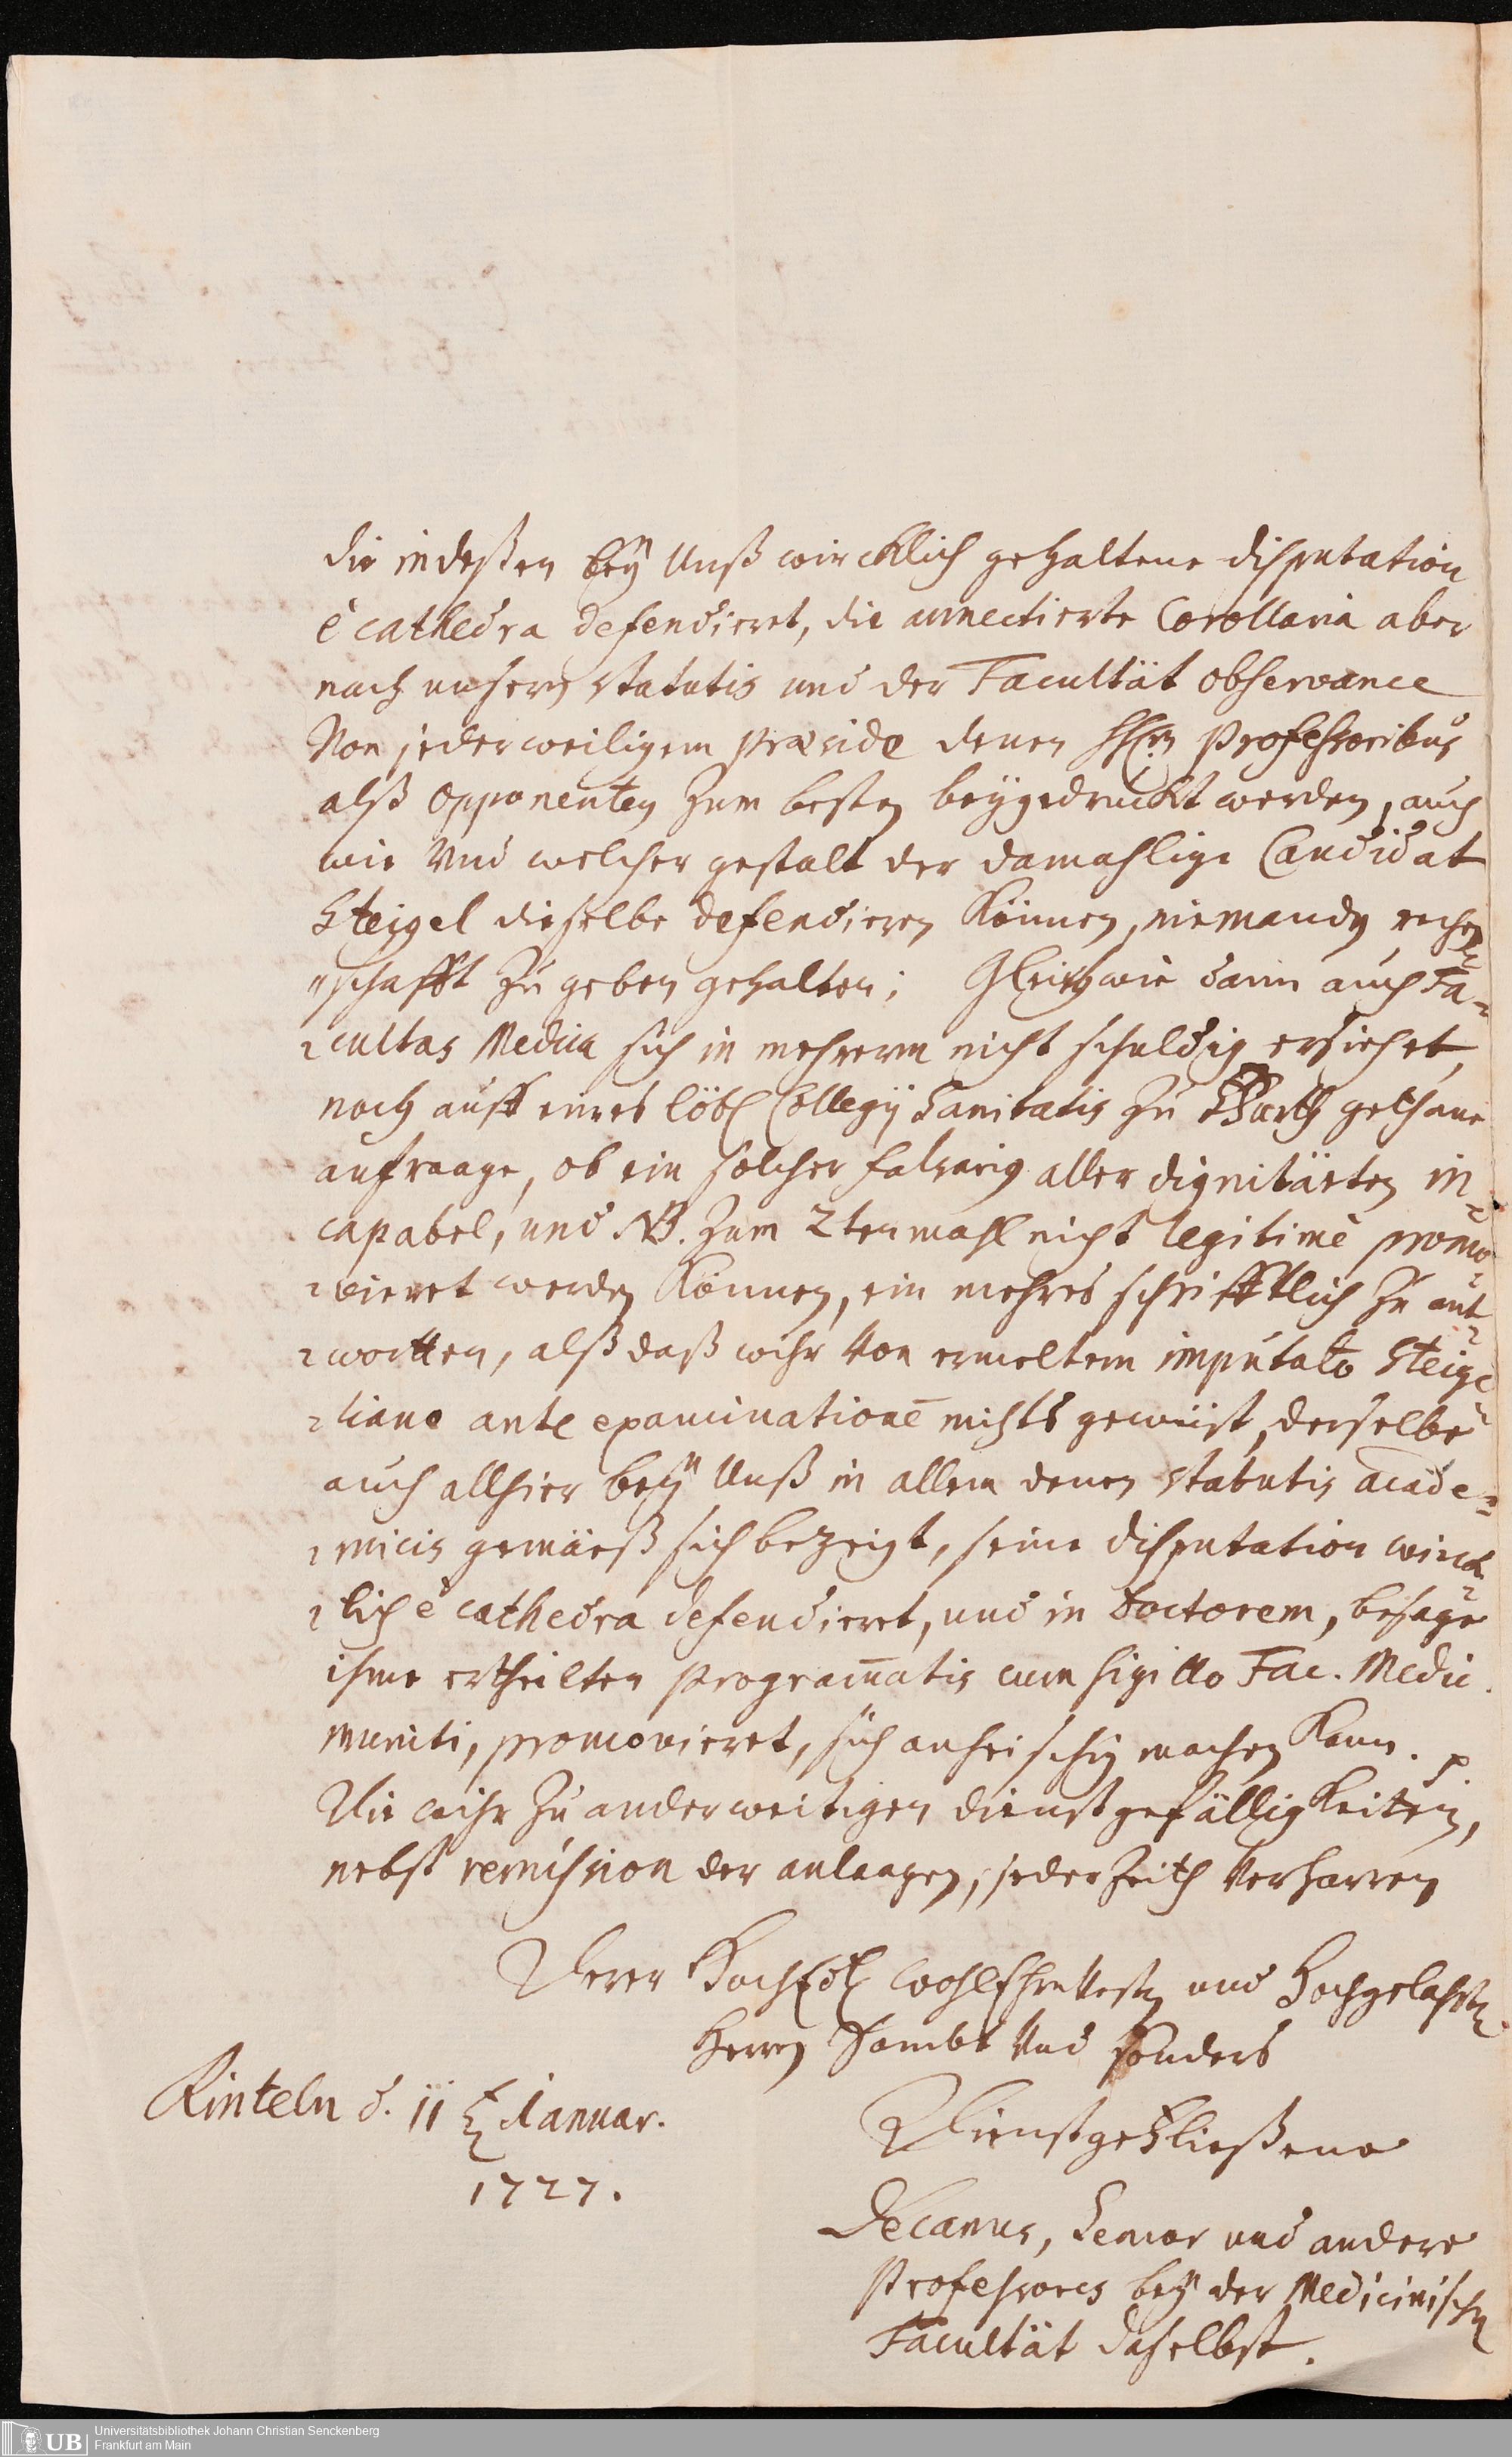 die indeßen beÿ Unß wircklich gehaltene disputation
è cathedra defendieret, die annectierte Corollaria aber
nach unsern statutis und der Facultät observance
Von jederweiligem præside denen HHrn Professoribus
alß Opponenten zum besten beÿgedruckt werden, auch
wie Und welcher gestalt der damahlige Candidat
Steigel dieselbe defendieren Können, niemandt rechen
schafft zu geben gehalten; Gleich wie dann auch Fa-
cultas Medica sich in mehrerm nicht schuldig ersiehet,
noch auff eines löbl Collegÿ Sanitatis zu gethane
anfraage, ob ein solcher falsarius aller dignitäeten in-
capabel, und NB. zum 2ten mahl nicht legitimè promo
vieret werden Können, ein mehres schrifftlich zu ant
wortten, alß daß wihr Von ermeltem imputato Steige
liano ante examinationē nichts gewüst, derselbe
auch allhier beÿ Unß in allem denen statutis acade-
micis gemäeß sich bezeigt, seine disputation wirck
lich è cathedra defendieret, und in Doctorem, besage
ihme ertheilten programmatis cum sigillo Fac. Medic.
muniti, promovieret, sich anheischig machen Kann.
Die wihr zu anderweitigen dienstgefälligKeiten,
nebst remission der anlaagen, jederzeith Verharren
Derer HochEdl WohlEhrnVesten und Hochgelahrten
Herren Sambt Und sonders
Rinteln d. 11 Januar.
1727.
Dienstgefließene
Decanus, Senior und andere
Professores beÿ der Medicinischen
Facultät daselbst.
UB
Universitätsbibliothek Johann Christian Senckenberg
Frankfurt am Main